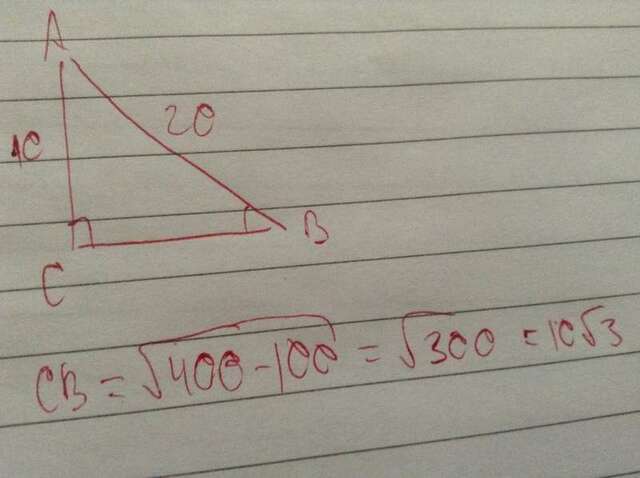 A
20
10
B
C
CB = √400-100 = √300 = 10√3